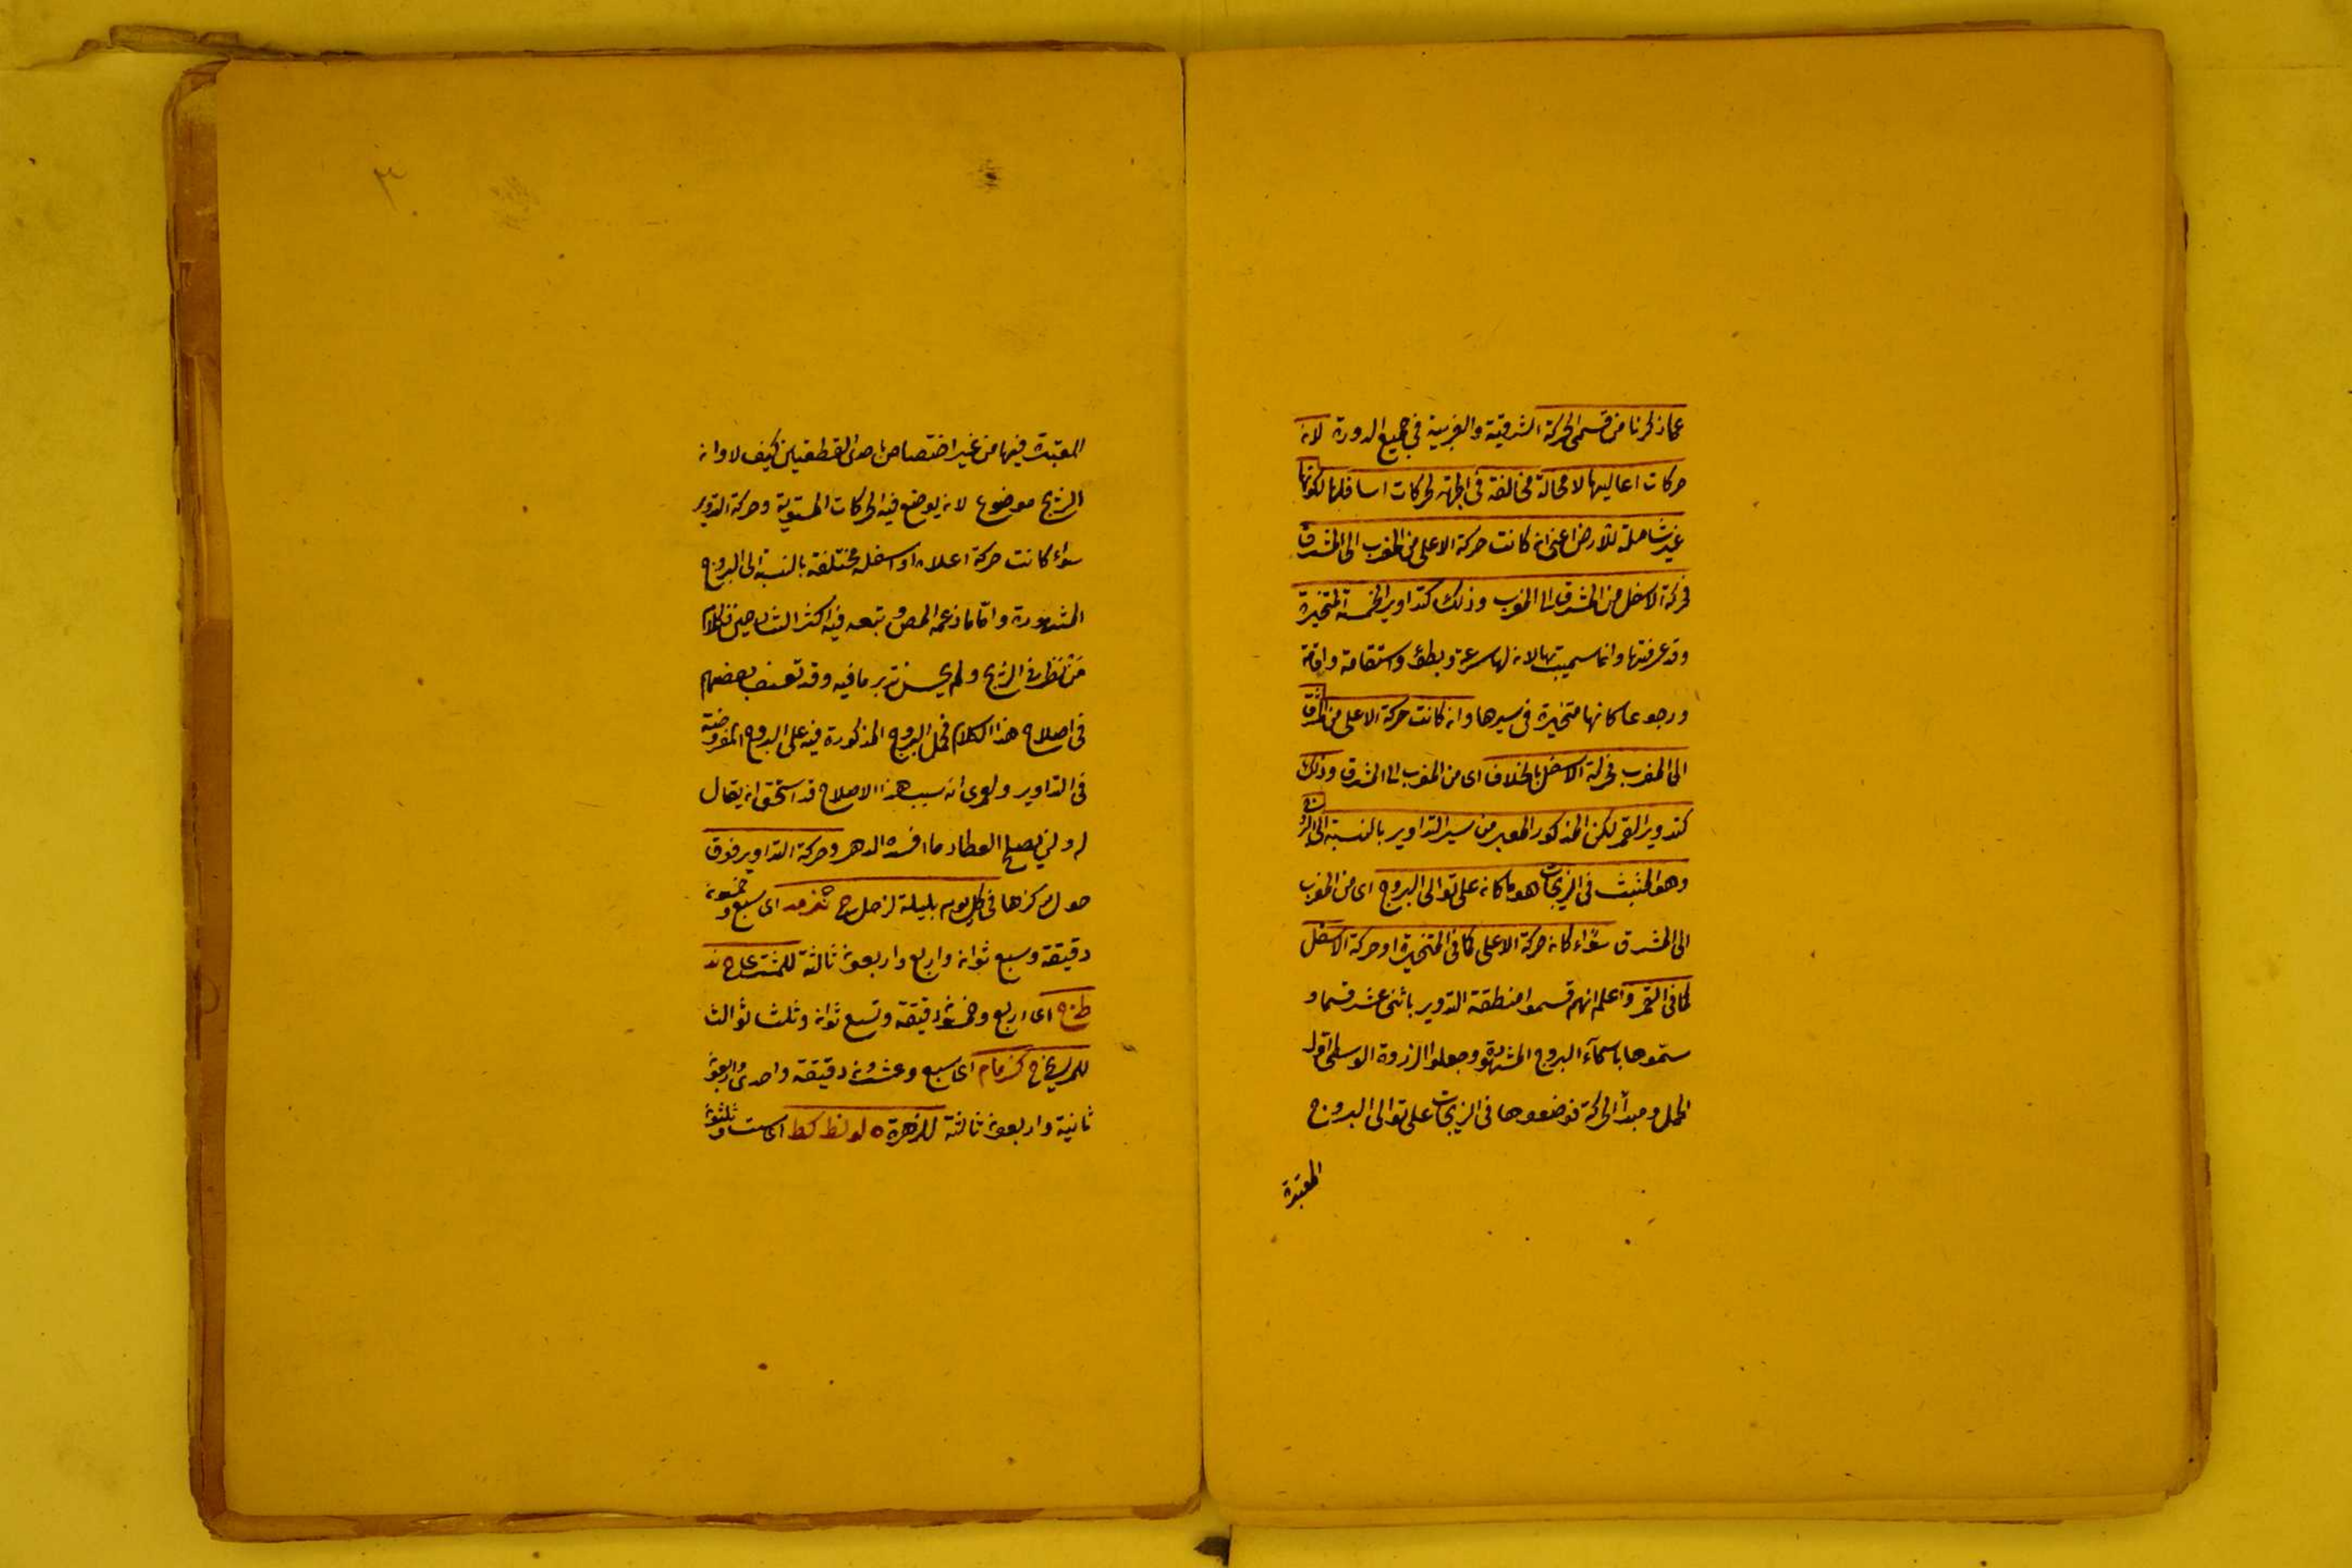 عما ذكرنا من قسمى الحركة الشرقية والغربية فى جميع الدورة لان
حركات اعاليها لا محالة مخالفة فى الجهة لحركات اسافلها لكونها
غير شاملة للارض اعنى ان كانت حركة الاعلى من المغرب الى المشرق
فحركة الاسفل من المشرق الى المغرب وذلك كتداوير الخمسة المتحيرة
وقد عرفتها وانما سميت بها لان لها سرعة وبطؤ واستقامة واقامة
ورجوعا كانها متحيرة فى سيرها وان كانت حركة الاعلى من المشرق
الى المغرب فحركة الاسفل بالخلاف اى من المغرب الى المشرق وذلك
كتدوير القمر لكن المذكور المعبر من سير التداوير بالنسبة الى البروج
وهو المثبت فى الزيجات هو ما كان على توالى البروج اى من المغرب
الى المشرق سواء كان حركة الاعلى كما فى المتحيرة او حركة الاسفل
كما فى القمر واعلم انهم قسموا منطقة التدوير باثنى عشر قسما و
سموها باسماء البروج المشهورة وجعلوا الذروة الوسطى اول
الحمل ومبدأ الحركة فوضعوها فى الزيجات على توالى البروج
المعتبرة
المعتبرة فيها من غير اختصاص باحدى القطعتين كيف لا وان
الزيج موضوع لان يوضع فيه الحركات المستوية وحركة التدوير
سواء كانت حركة اعلاه او اسفله مختلفة بالنسبة الى البروج
المشهورة واما ما زعمه المص وتبعه فيه اكثر الشارحين فكلام
من نظر فى الزيج ولم يحسن تدبر ما فيه وقد تعسف بعضهم
فى اصلاح هذا الكلام فحمل البروج المذكورة فيه على البروج المفروضة
فى التداوير ولعمرى انه بسبب هذا الاصلاح قد استحق ان يقال
له ولن يصلح العطار ما افسده الدهر وحركة التداوير فوق
حول مركزها فى كل يوم بليلة لزحل ح نز مد اى سبع وخمسون
دقيقة وسبع ثوان واربع واربعون ثالثة للمشترى ح ند
ط ح اى اربع وخمسون دقيقة وتسع ثوان وثلث ثوالث
للمريخ ح كز ما م اى سبع وعشرون دقيقة واحدى واربعون
ثانية واربعون ثالثة للزهرة ه لو نط كط اى ست وثلثون